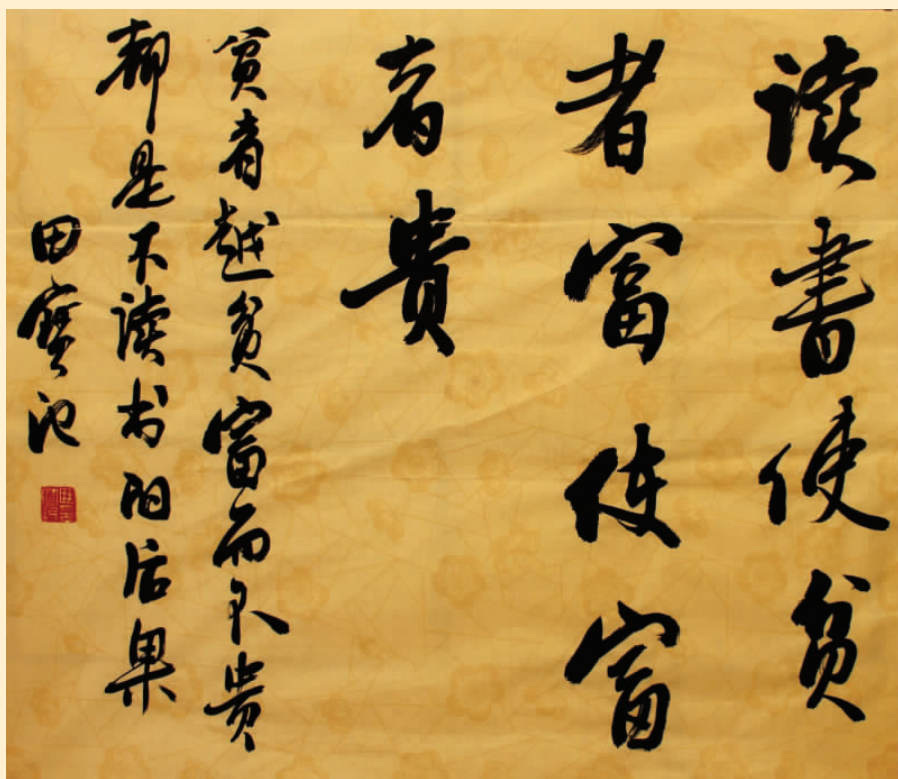 读書使贫
者富使富
者貴
贫者越贫富而不贵
都是不读书的后果
田寶池